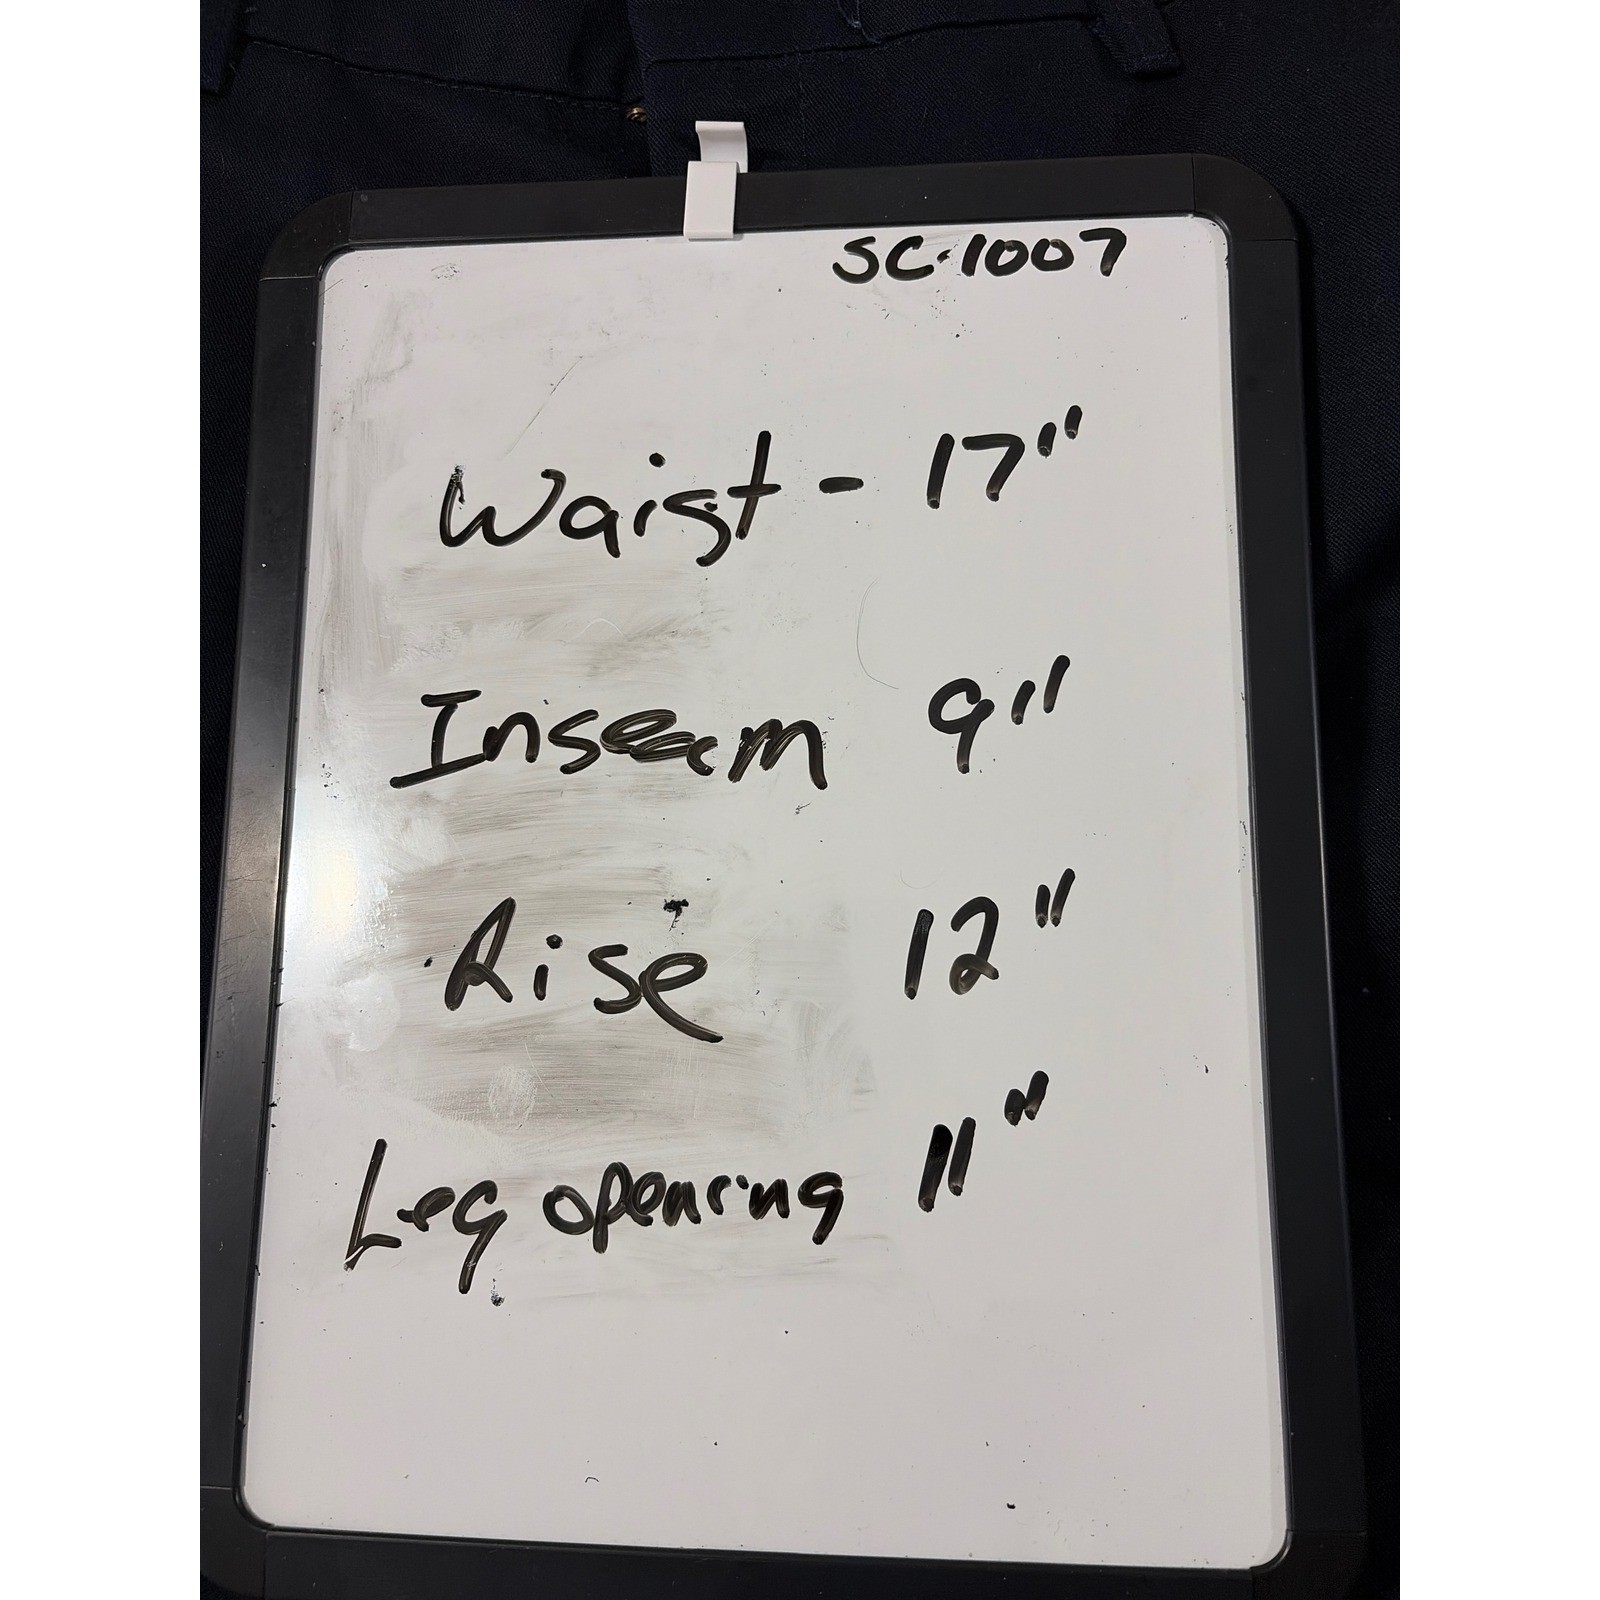 SC-1007
Waist - 17"
Inseam 9"
Rise 12"
Leg opening 11"